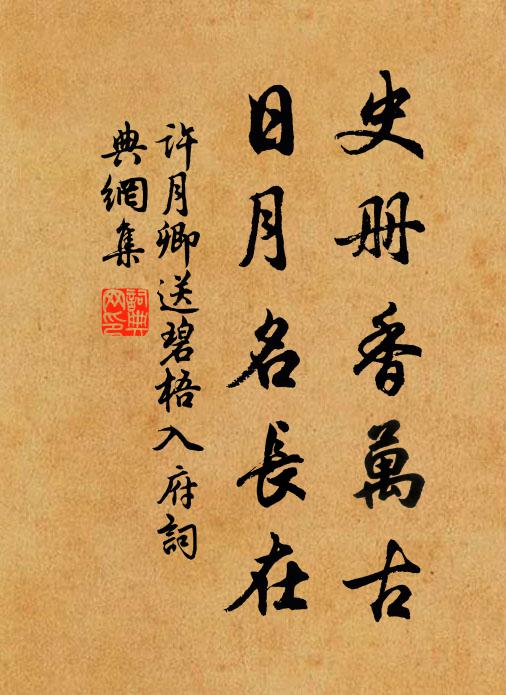 史册香萬古
日月名長在
許月卿送碧梧入府詞
典網集
詞典
网印